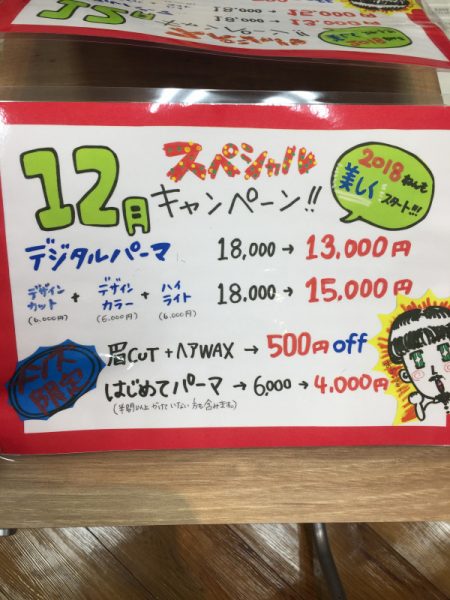 12月
スペシャル
キャンペーン!!
2018年を
美しく
スタート!!!
デジタルパーマ 18,000→13,000円
デザインカット + デザインカラー + ハイライト 18.000→15,000円
(6,000円) (6,000円) (6,000円)
限定
眉CUT+ヘアWAX→500円off
はじめてパーマ→6,000→4.000円
(半年以上かけていない方も含みます。)